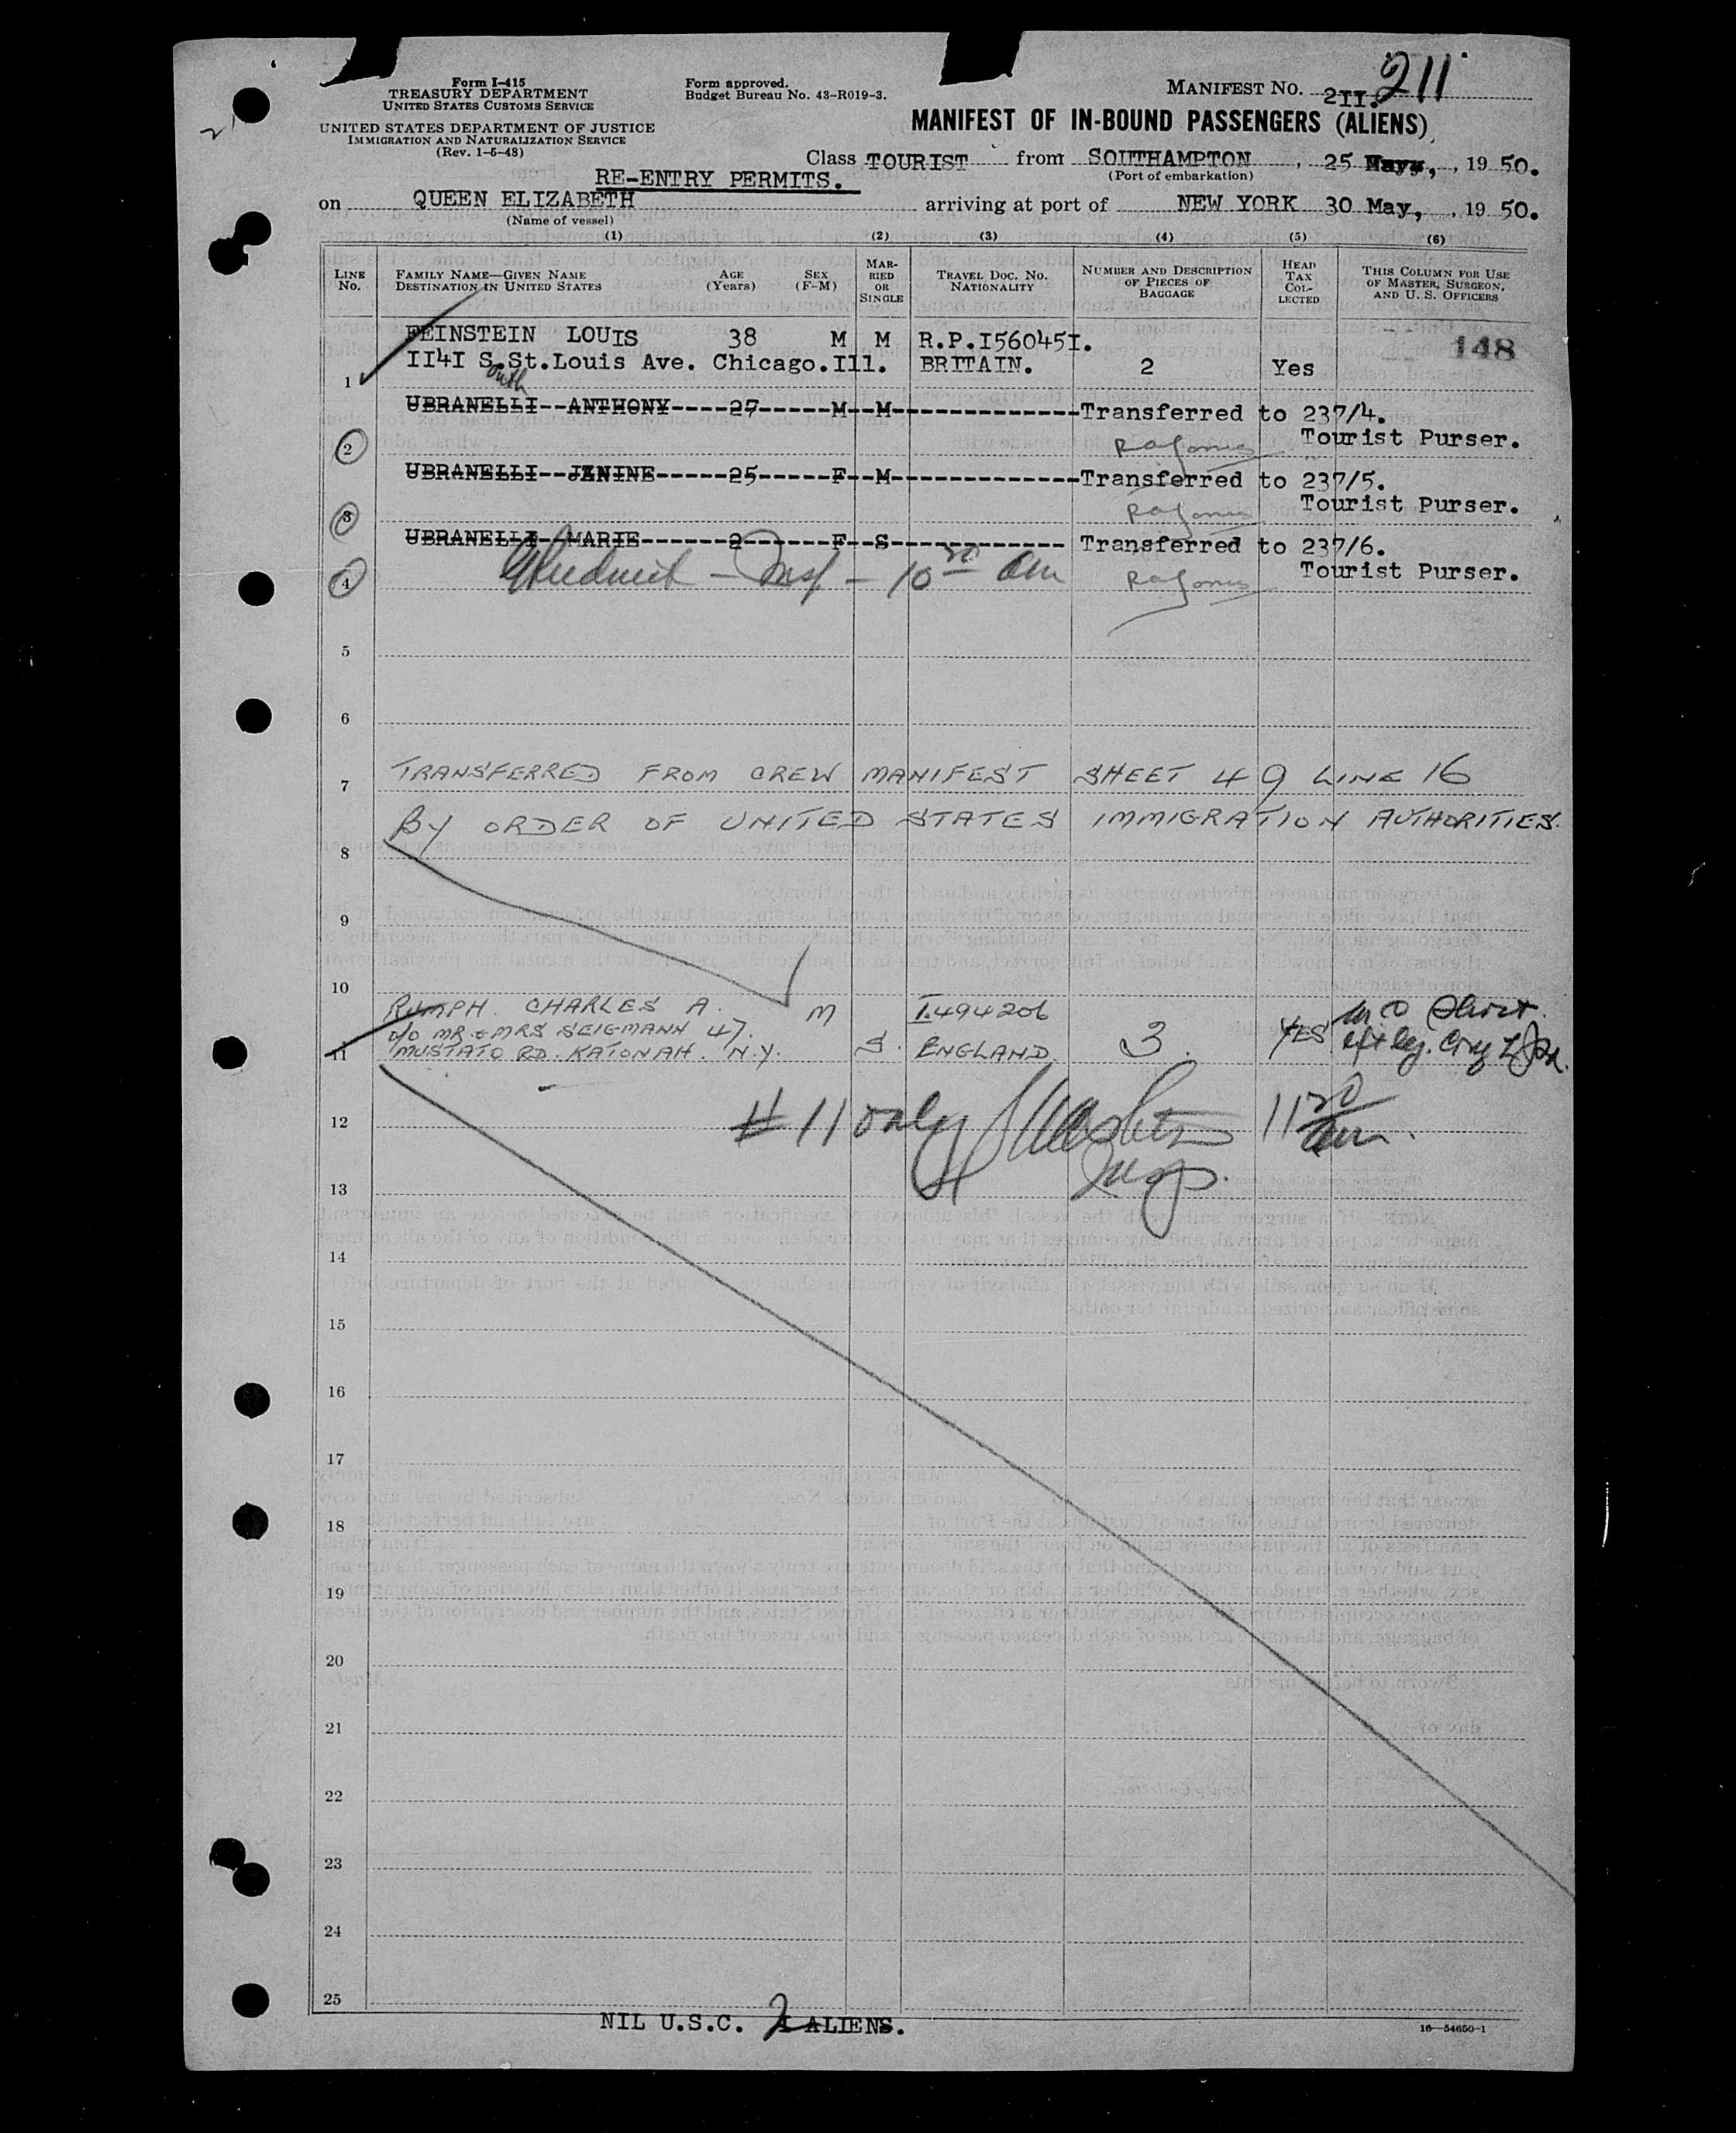 Form I-415
TREASURY DEPARTMENT
UNITED STATES CUSTOMS SERVICE
UNITED STATES DEPARTMENT OF JUSTICE
IMMIGRATION AND NATURALIZATION SERVICE
(Rev. 1-5-48)
Form approved.
Budget Bureau No. 43-R019-3.
MANIFEST NO. 2II. 211
MANIFEST OF IN-BOUND PASSENGERS (ALIENS)
Class TOURIST from SOUTHAMPTON, 25 May, 1950.
(Port of embarkation)
RE-ENTRY PERMITS.
on QUEEN ELIZABETH arriving at port of NEW YORK 30 May, 1950.
(Name of vessel)
(1) (2) (3) (4) (5) (6)
LINE No. FAMILY NAME—GIVEN NAME DESTINATION IN UNITED STATES AGE (Years) SEX (F-M) MARRIED OR SINGLE TRAVEL DOC. NO. NATIONALITY NUMBER AND DESCRIPTION OF PIECES OF BAGGAGE HEAD TAX COLLECTED THIS COLUMN FOR USE OF MASTER, SURGEON, AND U. S. OFFICERS
148
FEINSTEIN LOUIS 38 M M R.P.I56045I.
1 II4I S.St.Louis Ave. Chicago.Ill. BRITAIN. 2 Yes
outh
UBRANELLI--ANTHONY----27------M--M--------------Transferred to 237/4.
2 Tourist Purser.
UBRANELLI--JANINE------25------F--M--------------Transferred to 237/5.
3 Tourist Purser.
UBRANELLI--MARIE------2------F--S------------ Transferred to 237/6.
4 Insp - 10 30 am Tourist Purser.
5
6
7 TRANSFERRED FROM CREW MANIFEST SHEET 49 LINE 16
8 BY ORDER OF UNITED STATES IMMIGRATION AUTHORITIES.
9
10
RUMPH. CHARLES A. M I.494206
c/o MR & MRS SEIGMANN 47. S. 3. YES
11 MUSTATO RD. KATONAH. N.Y. ENGLAND.
12 # 11 only 11 30 am.
Insp.
13
14
15
16
17
18
19
20
21
22
23
24
25
NIL U.S.C. 2 ALIENS.
16—54650-1